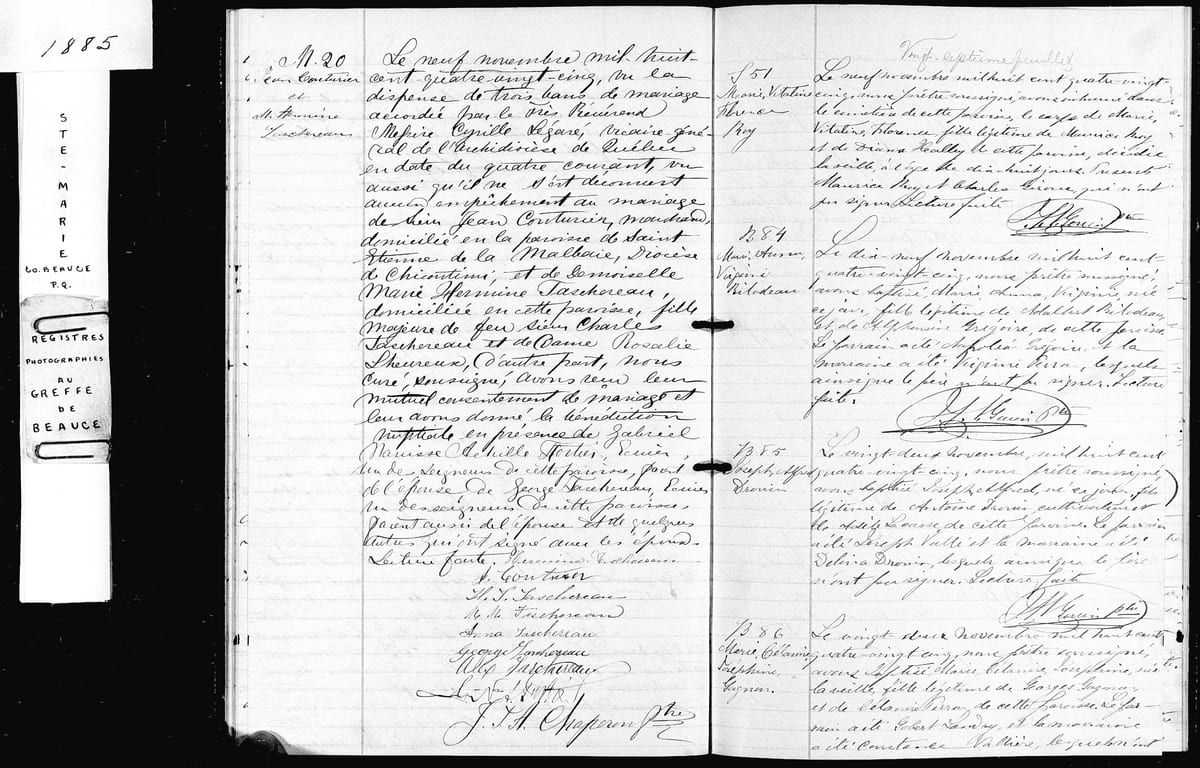 1885
STE-MARIE
CO. BEAUCE
P.Q.
REGISTRES
PHOTOGRAPHIES
AU
GREFFE
DE
BEAUCE
M. 20
Jean Couturier
et
M. Hermine
Taschereau
Le neuf novembre mil huit-
cent-quatre-vingt-cinq, vu la
dispense de trois bans de mariage
accordée par le Très Révérend
Messire Cyrille Légaré, Vicaire géné-
ral de l'Archidiocèse de Québec
en date du quatre courant, vu
aussi qu'il ne s'est découvert
aucun empêchement au mariage
de Sieur Jean Couturier, marchand,
domicilié en la paroisse de Saint
Etienne de la Malbaie, Diocèse
de Chicoutimi, et de Demoiselle
Marie Hermine Taschereau,
domiciliée en cette paroisse, fille
majeure de feu Sieur Charles
Taschereau et de Dame Rosalie
Lheureux, d'autre part, nous
curé, soussigné, avons reçu leur
mutuel consentement de mariage et
leur avons donné la bénédiction
nuptiale en présence de Gabriel
Achille
un des Seigneurs de cette paroisse, parent
de l'épouse, de George Taschereau, Ecuier
un des seigneurs de cette paroisse
parent aussi de l'épouse et de quelques
autres qui ont signé avec les époux.
Lecture faite. Hermine Taschereau
J. Couturier
Taschereau
M. M. Taschereau
Anna Taschereau
George Taschereau
Taschereau
J. T. A. Chaperon Ptre
Vingt-septième feuillet
S 51
Marie, Vitaline
Florence
Roy
Le neuf novembre mil huit cent quatre-vingt
cinq, nous prêtre soussigné avons inhumé dans
le cimetière de cette paroisse, le corps de Marie,
Vitaline, Florence, fille légitime de Maurice Roy
et de Diana de cette paroisse, décédée
la veille, à l'âge de dix-huit jours. Présents
Maurice Roy et Charles qui n'ont
pu signer. Lecture faite
Ptre
B 84
Marie, Anna,
Virginie
Bilodeau
Le dix-neuf novembre mil huit cent
quatre-vingt-cinq, nous prêtre soussigné,
avons baptisé Marie, Anna, Virginie, née
ce jour, fille légitime de Adalbert Bilodeau
et de Alphonsine Grégoire, de cette paroisse
Le parrain a été Napoléon Grégoire et la
marraine a été Virginie lesquels
ainsi que le père n'ont pu signer. Lecture
faite.
Ptre
B 85
Joseph, Alfred
Drouin
Le vingt deux novembre, mil huit cent
quatre-vingt-cinq, nous prêtre soussigné,
avons baptisé Joseph, Alfred, né ce jour, fils
légitime de Antoine Drouin cultivateur et
de de cette paroisse. Le parrain
a été Joseph et la marraine a été
Delvina Drouin, lesquels ainsi que le père
n'ont pu signer. Lecture faite
Ptre
B 86
Marie, Célanire,
Joséphine,
Gagnon.
Le vingt deux novembre mil huit cent
quatre-vingt-cinq, nous prêtre soussigné,
avons baptisé Marie, Célanire, Joséphine, née
la veille, fille légitime de Georges Gagnon
et de de cette paroisse. Le par-
rain a été Landry et la marraine
a été Constance Vallière, lesquels n'ont